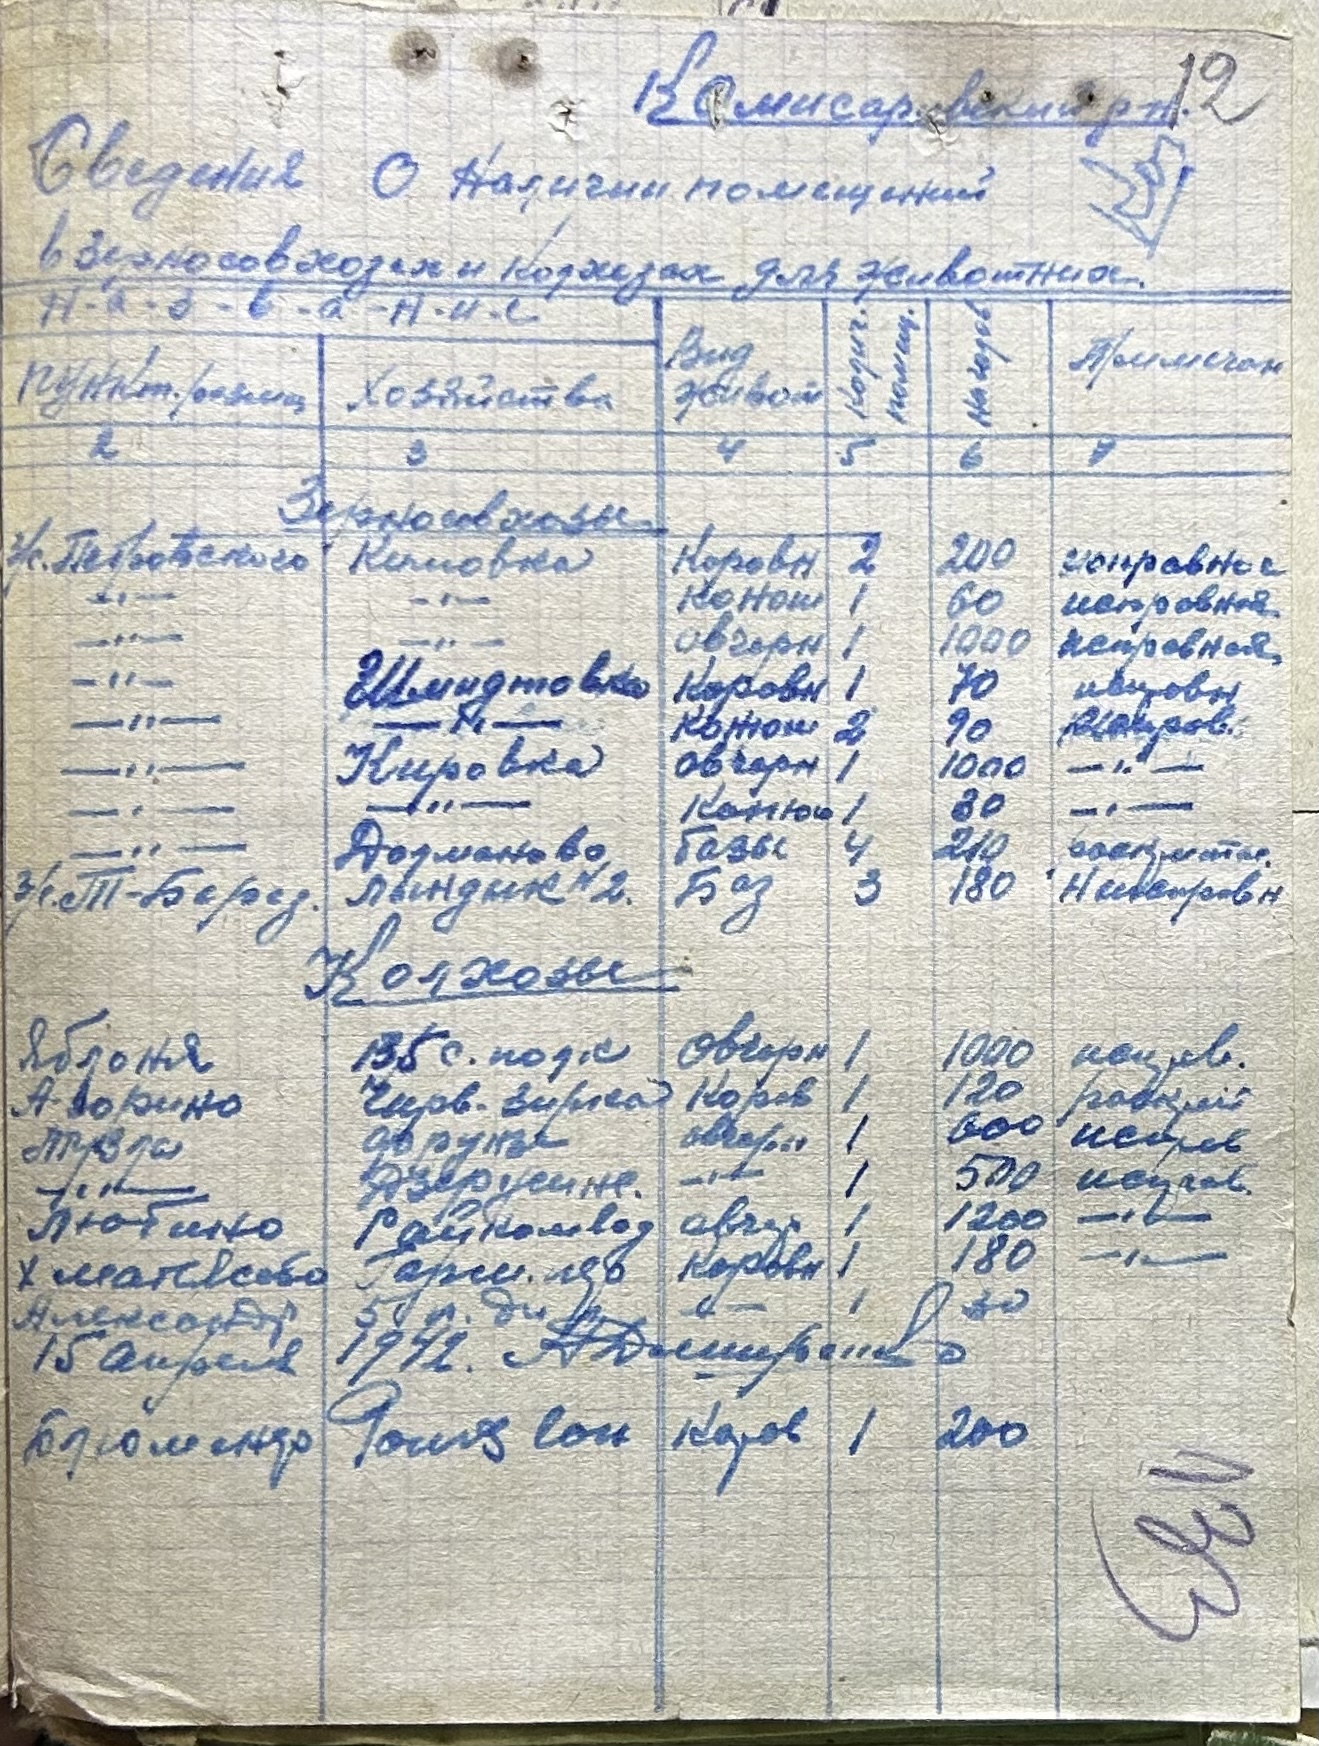 Комисаровский р-н. 12
Сведения о наличии помещений
в зерносовхозах и колхозах для животних.
Н-а-з-в-а-н-и-е
Пункт. размещ Хозяйства Вид живот Колич. помещ. На голов Примечан
2 3 4 5 6 7
Зерносовхозы
з/с. Петровского Кимовка Коровн 2 200 исправное
—"— —"— Конюш 1 60 исправная
—"— —"— овчарн 1 1000 исправная
—"— Шмидтовка Коровн 1 70 исправн
—"— —"— Конюш 2 90 исправ.
—"— Кировка овчарн 1 1000 —"—
—"— —"— Конюш 1 30 —"—
—"— Долманово базы 4 210
з/с. Т-Берез. Линдик №2. Баз 3 180 Неисправн
Колхозы
Яблоня Овчарн 1 1000 исправ.
А-Дарино Черв. зирка Коров 1 120
Тузла Фрунзе овчарн 1 600 исправ
—"— Дзержинс. —"— 1 500 исправ.
Любино овчар 1 1200 —"—
Коровн 1 180 —"—
—"— 1
15 апреля 1942.
Коров 1 200